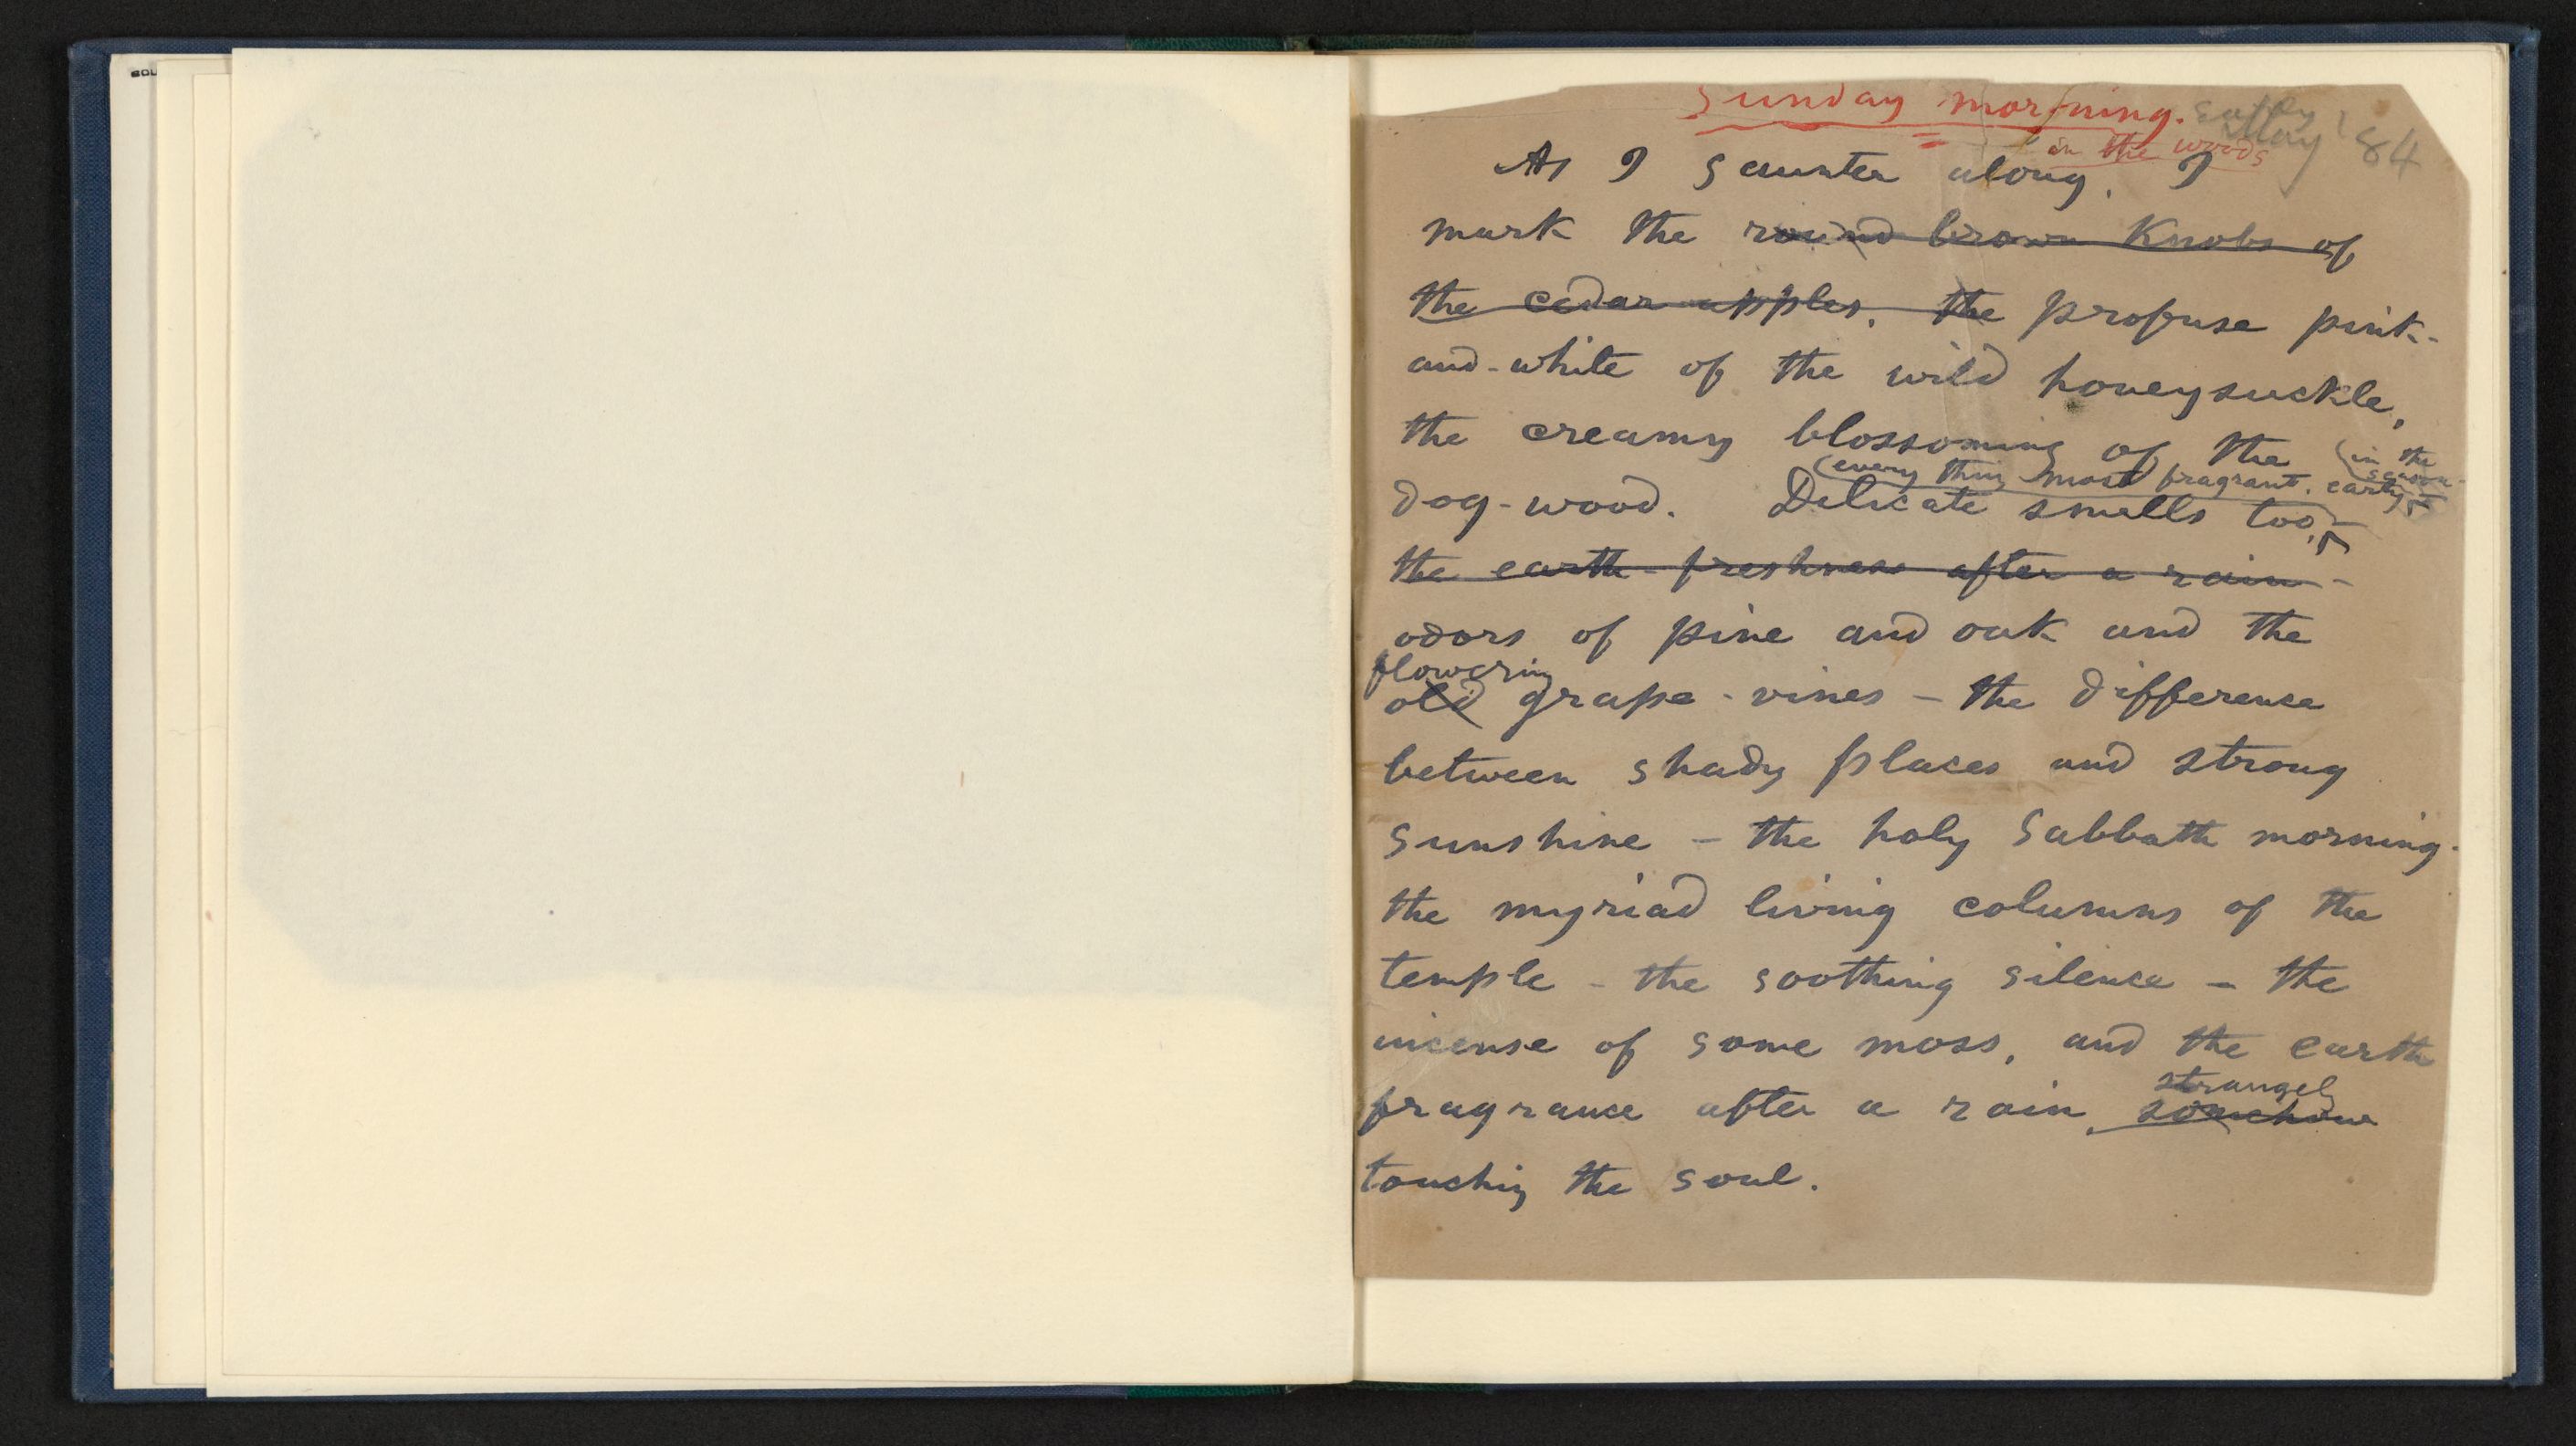 Sunday morning. early
May '84
in the woods
As I saunter along, I
mark the round brown knobs of
the cedar apples, the profuse pink-
and-white of the wild honeysuckle,
the creamy blossoming of the
(every thing most fragrant, early (in the season
dog-wood. Delicate smells too,
the earth-freshness after a rain -
odors of pine and oak and the
flowering
old grape-vines – the difference
between shady places and strong
sunshine – the holy Sabbath morning-
the myriad living columns of the
temple – the soothing silence – the
incense of some moss, and the earth
fragrance after a rain, somehow
strangely
touching the soul.